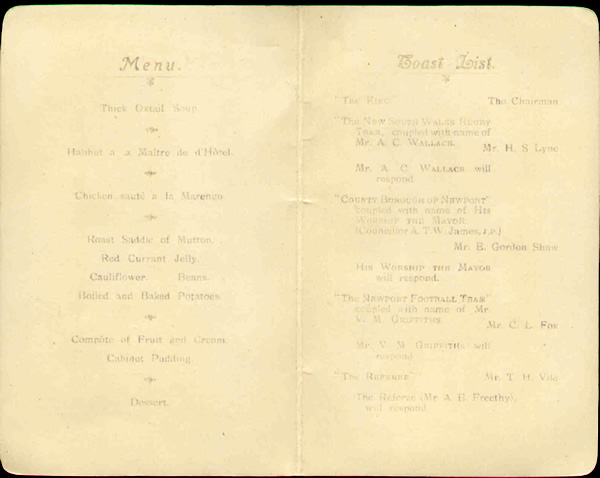 Menu.
Thick Oxtail Soup.
Halibut a la Maître de d'Hôtel.
Chicken sauté a la Marengo.
Roast Saddle of Mutton.
Red Currant Jelly.
Cauliflower. Beans.
Boiled and Baked Potatoes.
Compôte of Fruit and Cream.
Cabinet Pudding.
Dessert.
Toast List.
"The King The Chairman
"The New South Wales Rugby
Team, coupled with name of
Mr. A. C. Wallace.
Mr. H. S Lyne
Mr. A. C. Wallace will
respond
"County Borough of Newport"
coupled with name of His
Worship the Mayor
(Councillor A. T. W. James, J.P.)
Mr. E. Gordon Shaw
His Worship the Mayor
will respond.
"The Newport Football Team"
coupled with name of Mr.
V. M. Griffiths
Mr. C. L. Fox
Mr. V. M Griffiths will
respond
"The Referee" Mr. T. H. Vile
The Referee (Mr A. E. Freethy),
will respond